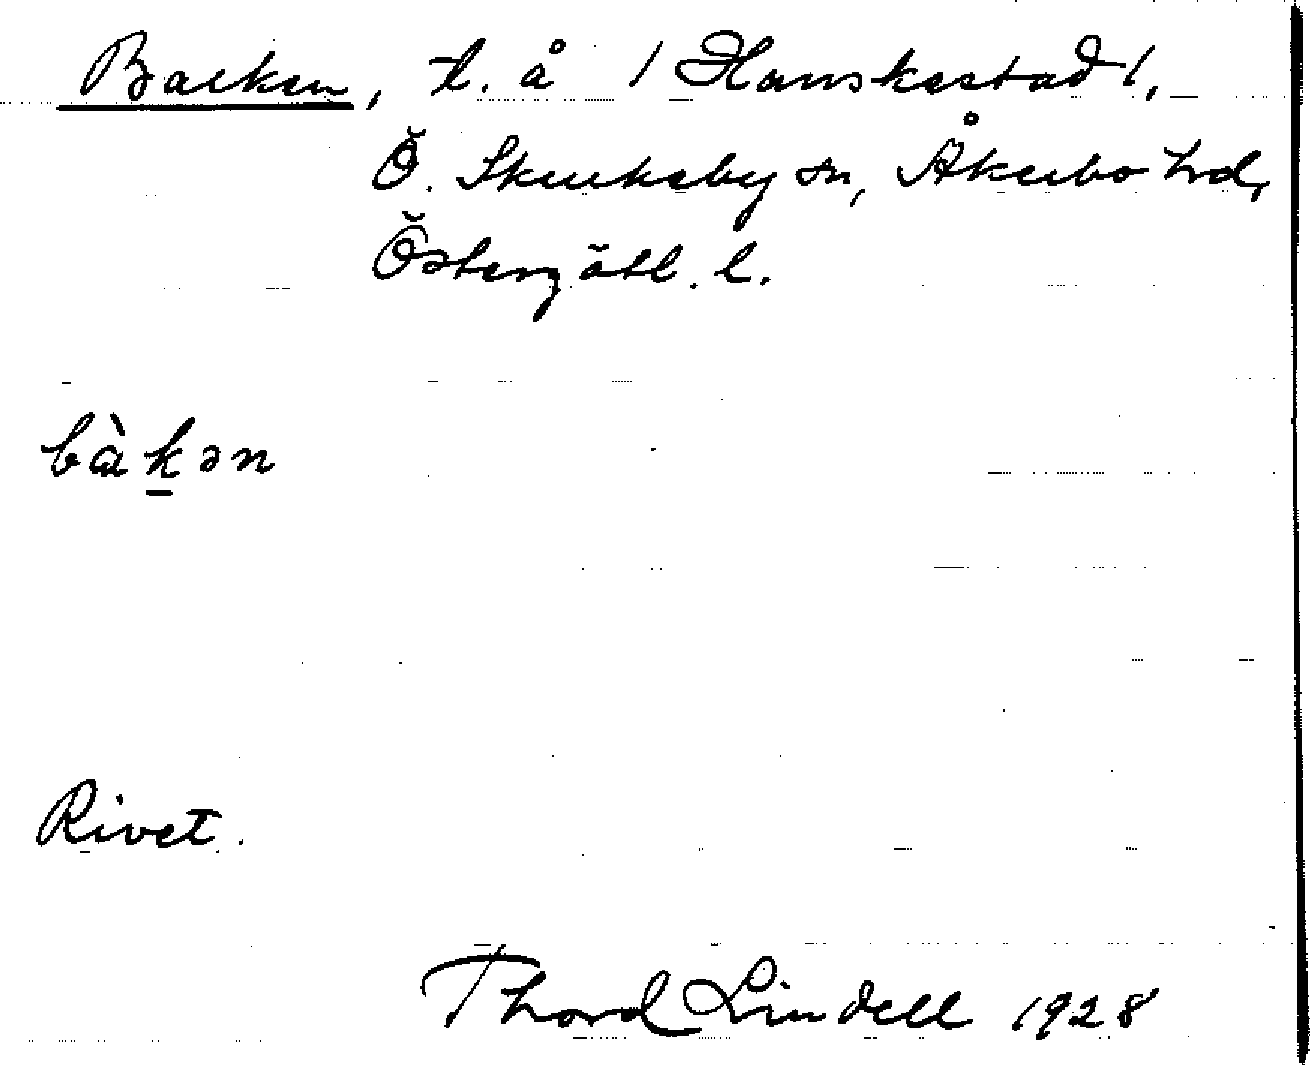 Backen, t. å /Hanskestad/,
Ö. Skrukeby sn, Åkerbo hd,
Östergötl. l.
bàkən
Rivet.
Thord Lindell 1928